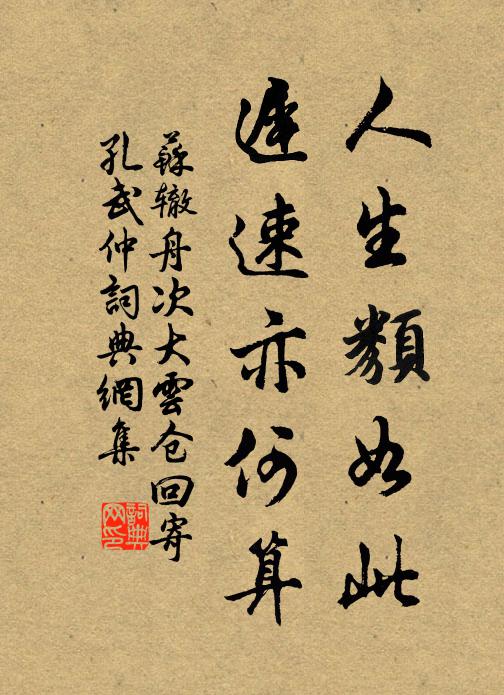 人生類如此
遲速亦何算
蘇辙舟次大雲仓回寄
孔武仲詞典網集
詞典网印